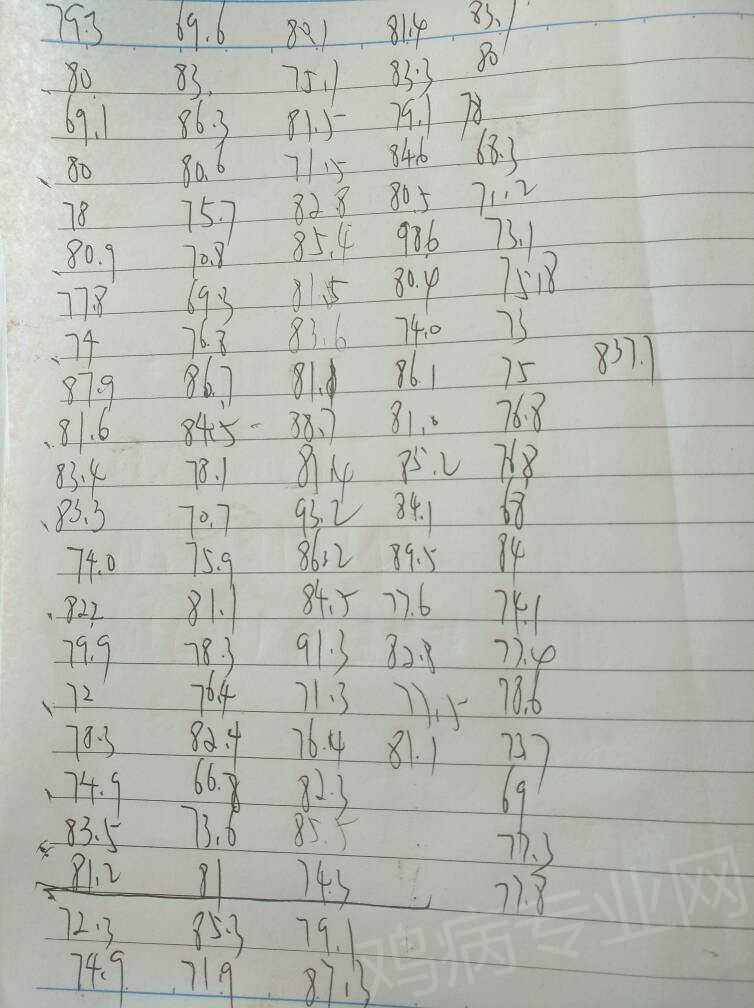 79.3 69.6 80.1 81.4 83.1
80 83. 75.1 83.3 80
69.1 86.3 81.5 79.1 78
80 80.6 71.5 84.6 68.3
78 75.7 82.8 80.5 71.2
80.9 70.8 85.4 98.6 73.1
77.8 69.3 81.5 80.4 75.8
74 76.8 83.6 74.0 73
87.9 86.7 81.8 86.1 75 837.7
81.6 84.5 88.7 81.0 76.8
83.4 78.1 81.4 85.2 76.8
83.3 70.7 93.2 84.1 68
74.0 75.9 86.2 89.5 84
82.2 81.1 84.5 77.6 74.1
79.9 78.3 91.3 82.8 77.4
72 76.4 71.3 77.5 78.6
78.3 82.4 76.4 81.1 73.7
74.9 66.8 82.3 69
83.5 73.6 85.5 77.3
81.2 81 74.3 77.8
72.3 85.3 79.1
74.9 71.9 87.3
鸡病专业网